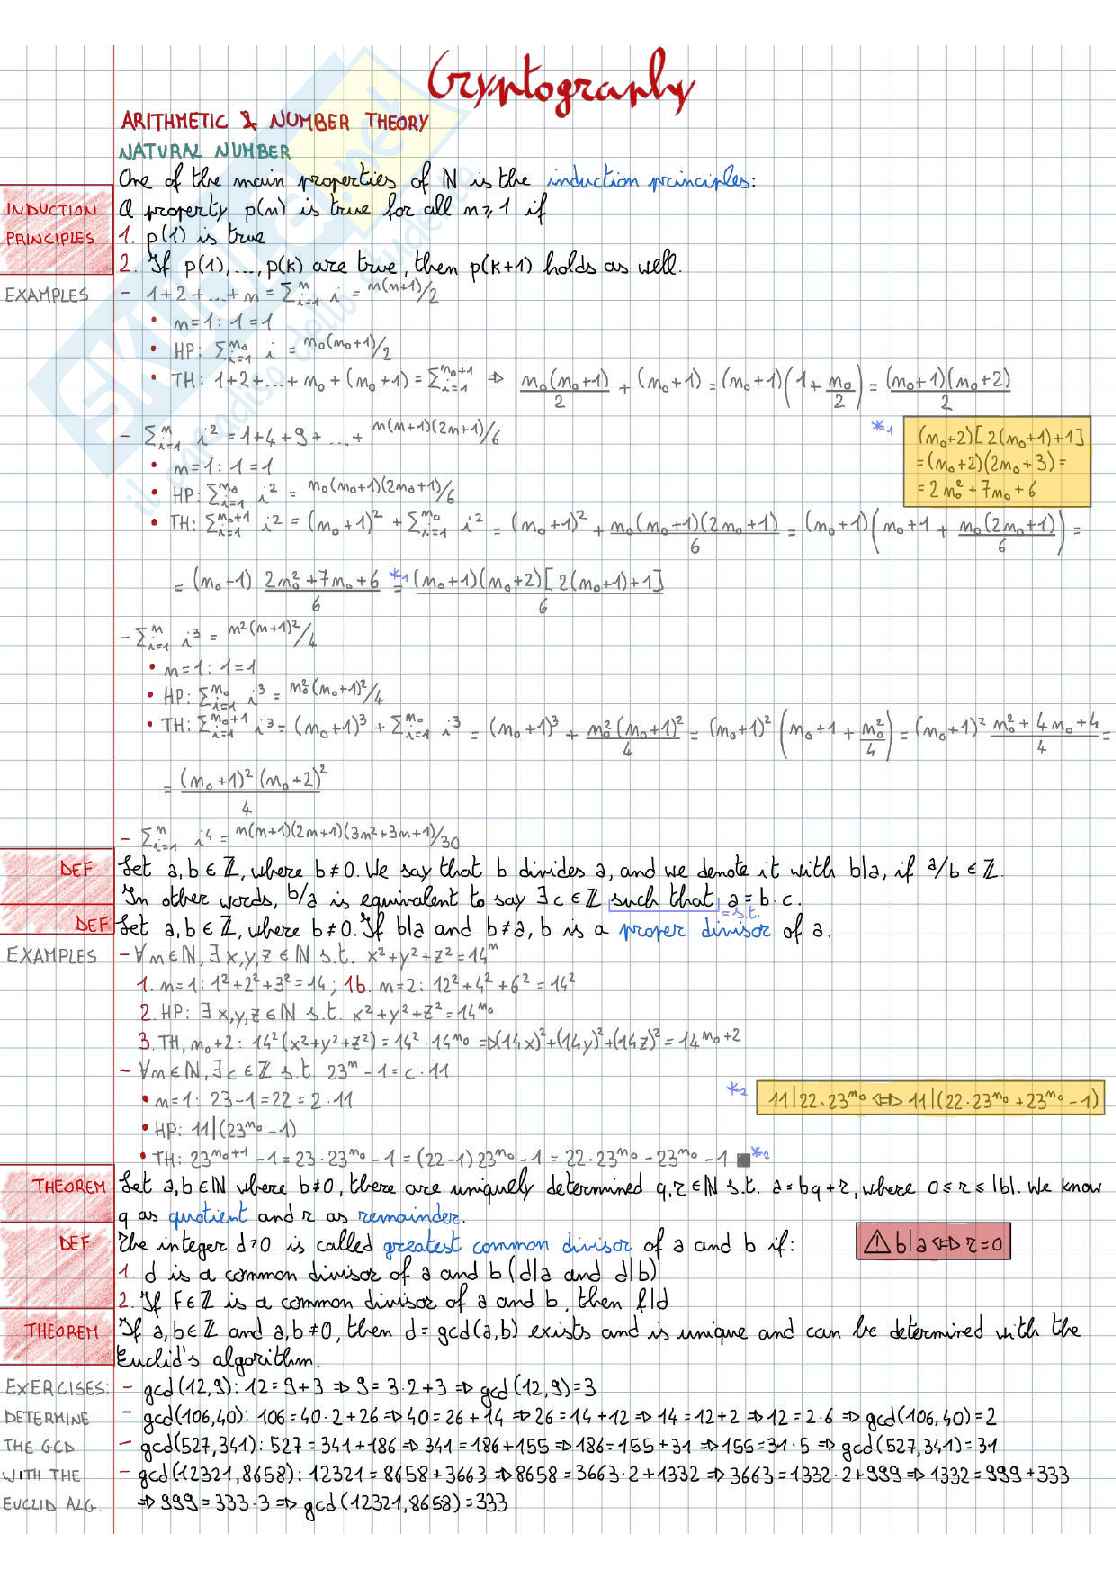 Cryptography
ARITHMETIC & NUMBER THEORY
NATURAL NUMBER
One of the main properties of N is the induction principles:
INDUCTION PRINCIPLES
A property p(n) is true for all n≥1 if
1. p(1) is true
2. If p(1),...,p(k) are true, then p(k+1) holds as well.
EXAMPLES - 1+2+...+n = Σⁿᵢ₌₁ i = n(n+1)/2
• n=1: 1=1
• HP: Σ^{n₀}_{i=1} i = n₀(n₀+1)/2
• TH: 1+2+...+n₀+(n₀+1) = Σ^{n₀+1}_{i=1} ⇒ n₀(n₀+1)/2 + (n₀+1) = (n₀+1)(1+n₀/2) = (n₀+1)(n₀+2)/2
- Σⁿᵢ₌₁ i² = 1+4+9+...+ n(n+1)(2n+1)/6
*1 (n₀+2)[2(n₀+1)+1]
=(n₀+2)(2n₀+3)=
=2n₀²+7n₀+6
• n=1: 1=1
• HP: Σ^{n₀}_{i=1} i² = n₀(n₀+1)(2n₀+1)/6
• TH: Σ^{n₀+1}_{i=1} i² = (n₀+1)² + Σ^{n₀}_{i=1} i² = (n₀+1)² + n₀(n₀+1)(2n₀+1)/6 = (n₀+1)(n₀+1 + n₀(2n₀+1)/6) =
= (n₀+1) 2n₀²+7n₀+6/6 =*1 (n₀+1)(n₀+2)[2(n₀+1)+1]/6
- Σⁿᵢ₌₁ i³ = n²(n+1)²/4
• n=1: 1=1
• HP: Σ^{n₀}_{i=1} i³ = n₀²(n₀+1)²/4
• TH: Σ^{n₀+1}_{i=1} i³ = (n₀+1)³ + Σ^{n₀}_{i=1} i³ = (n₀+1)³ + n₀²(n₀+1)²/4 = (n₀+1)²(n₀+1+n₀²/4) = (n₀+1)² n₀²+4n₀+4/4 =
= (n₀+1)²(n₀+2)²/4
- Σⁿᵢ₌₁ i⁴ = n(n+1)(2n+1)(3n²+3n+1)/30
DEF Let a,b∈ℤ, where b≠0. We say that b divides a, and we denote it with b|a, if a/b∈ℤ.
In other words, b/a is equivalent to say ∃c∈ℤ such that a=b·c.
=s.t.
DEF Let a,b∈ℤ, where b≠0. If b|a and b≠a, b is a proper divisor of a.
EXAMPLES - ∀n∈ℕ, ∃x,y,z∈ℕ s.t. x²+y²+z²=14ⁿ
1. n=1: 1²+2²+3²=14; 1b. n=2: 12²+4²+6²=14²
2. HP: ∃x,y,z∈ℕ s.t. x²+y²+z²=14^{n₀}
3. TH, n₀+2: 14²(x²+y²+z²)=14²·14^{n₀} ⇒(14x)²+(14y)²+(14z)²=14^{n₀+2}
- ∀n∈ℕ, ∃c∈ℤ s.t. 23ⁿ-1=c·11
• n=1: 23-1=22=2·11
*2 11|22·23^{n₀} ⇔ 11|(22·23^{n₀}+23^{n₀}-1)
• HP: 11|(23^{n₀}-1)
• TH: 23^{n₀+1}-1=23·23^{n₀}-1=(22-1)23^{n₀}-1=22·23^{n₀}-23^{n₀}-1 ■*2
THEOREM Let a,b∈ℕ where b≠0, there are uniquely determined q,r∈ℕ s.t. a=bq+r, where 0≤r≤|b|. We know
q as quotient and r as remainder.
DEF The integer d>0 is called greatest common divisor of a and b if:
⚠ b|a⇔r=0
1. d is a common divisor of a and b (d|a and d|b)
2. If f∈ℤ is a common divisor of a and b, then f|d
THEOREM If a,b∈ℤ and a,b≠0, then d=gcd(a,b) exists and is unique and can be determined with the
Euclid's algorithm.
EXERCISES: - gcd(12,9): 12=9+3 ⇒ 9=3·2+3 ⇒ gcd(12,9)=3
DETERMINE - gcd(106,40): 106=40·2+26 ⇒ 40=26+14 ⇒ 26=14+12 ⇒ 14=12+2 ⇒ 12=2·6 ⇒ gcd(106,40)=2
THE GCD - gcd(527,341): 527=341+186 ⇒ 341=186+155 ⇒ 186=155+31 ⇒ 155=31·5 ⇒ gcd(527,341)=31
WITH THE - gcd(12321,8658): 12321=8658+3663 ⇒ 8658=3663·2+1332 ⇒ 3663=1332·2+999 ⇒ 1332=999+333
EUCLID ALG. ⇒ 999=333·3 ⇒ gcd(12321,8658)=333